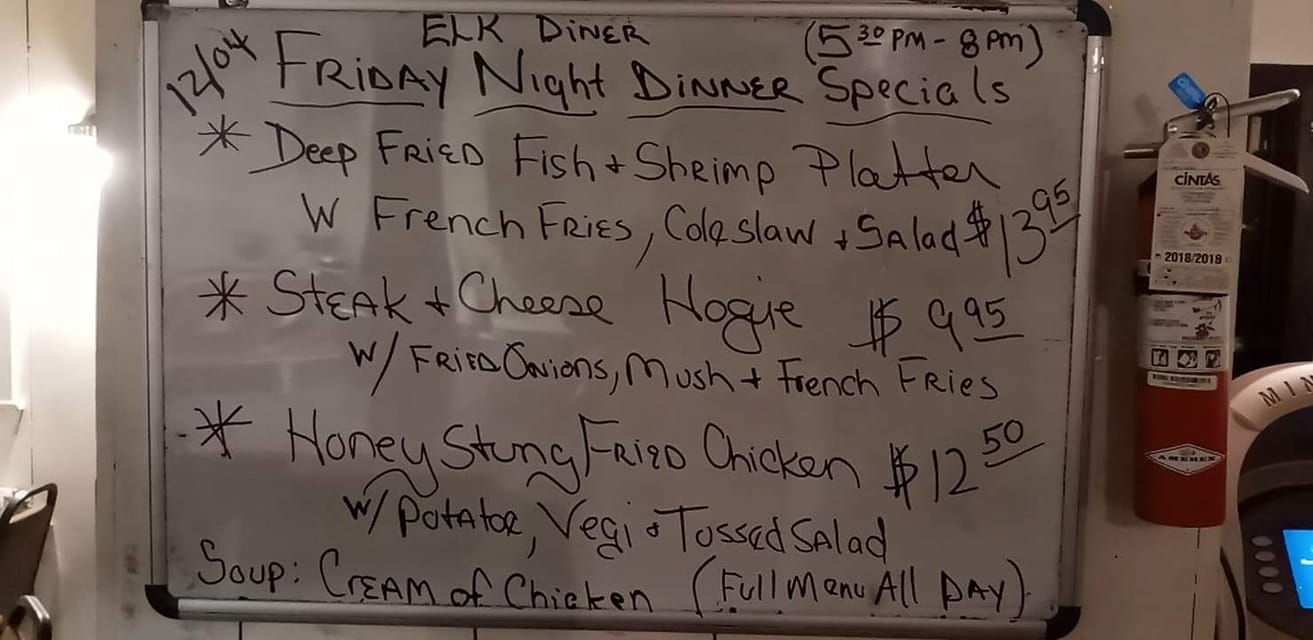 ELK DINER (5 30 PM - 8 PM)
12/04 FRIDAY Night DINNER Specials
* Deep FRIED Fish + Shrimp Platter
W French FRIES, Coleslaw + Salad $13 95
* STEAK + Cheese Hogie $9 95
W/ FRIED ONIONS, Mush + French FRies
* Honey Stung FRIED Chicken $12 50
W/ Potatoe, Vegi + Tossed Salad
Soup: CREAM of Chicken (Full Menu All DAY)
CINTAS
2018/2019
AMEREX
MIN